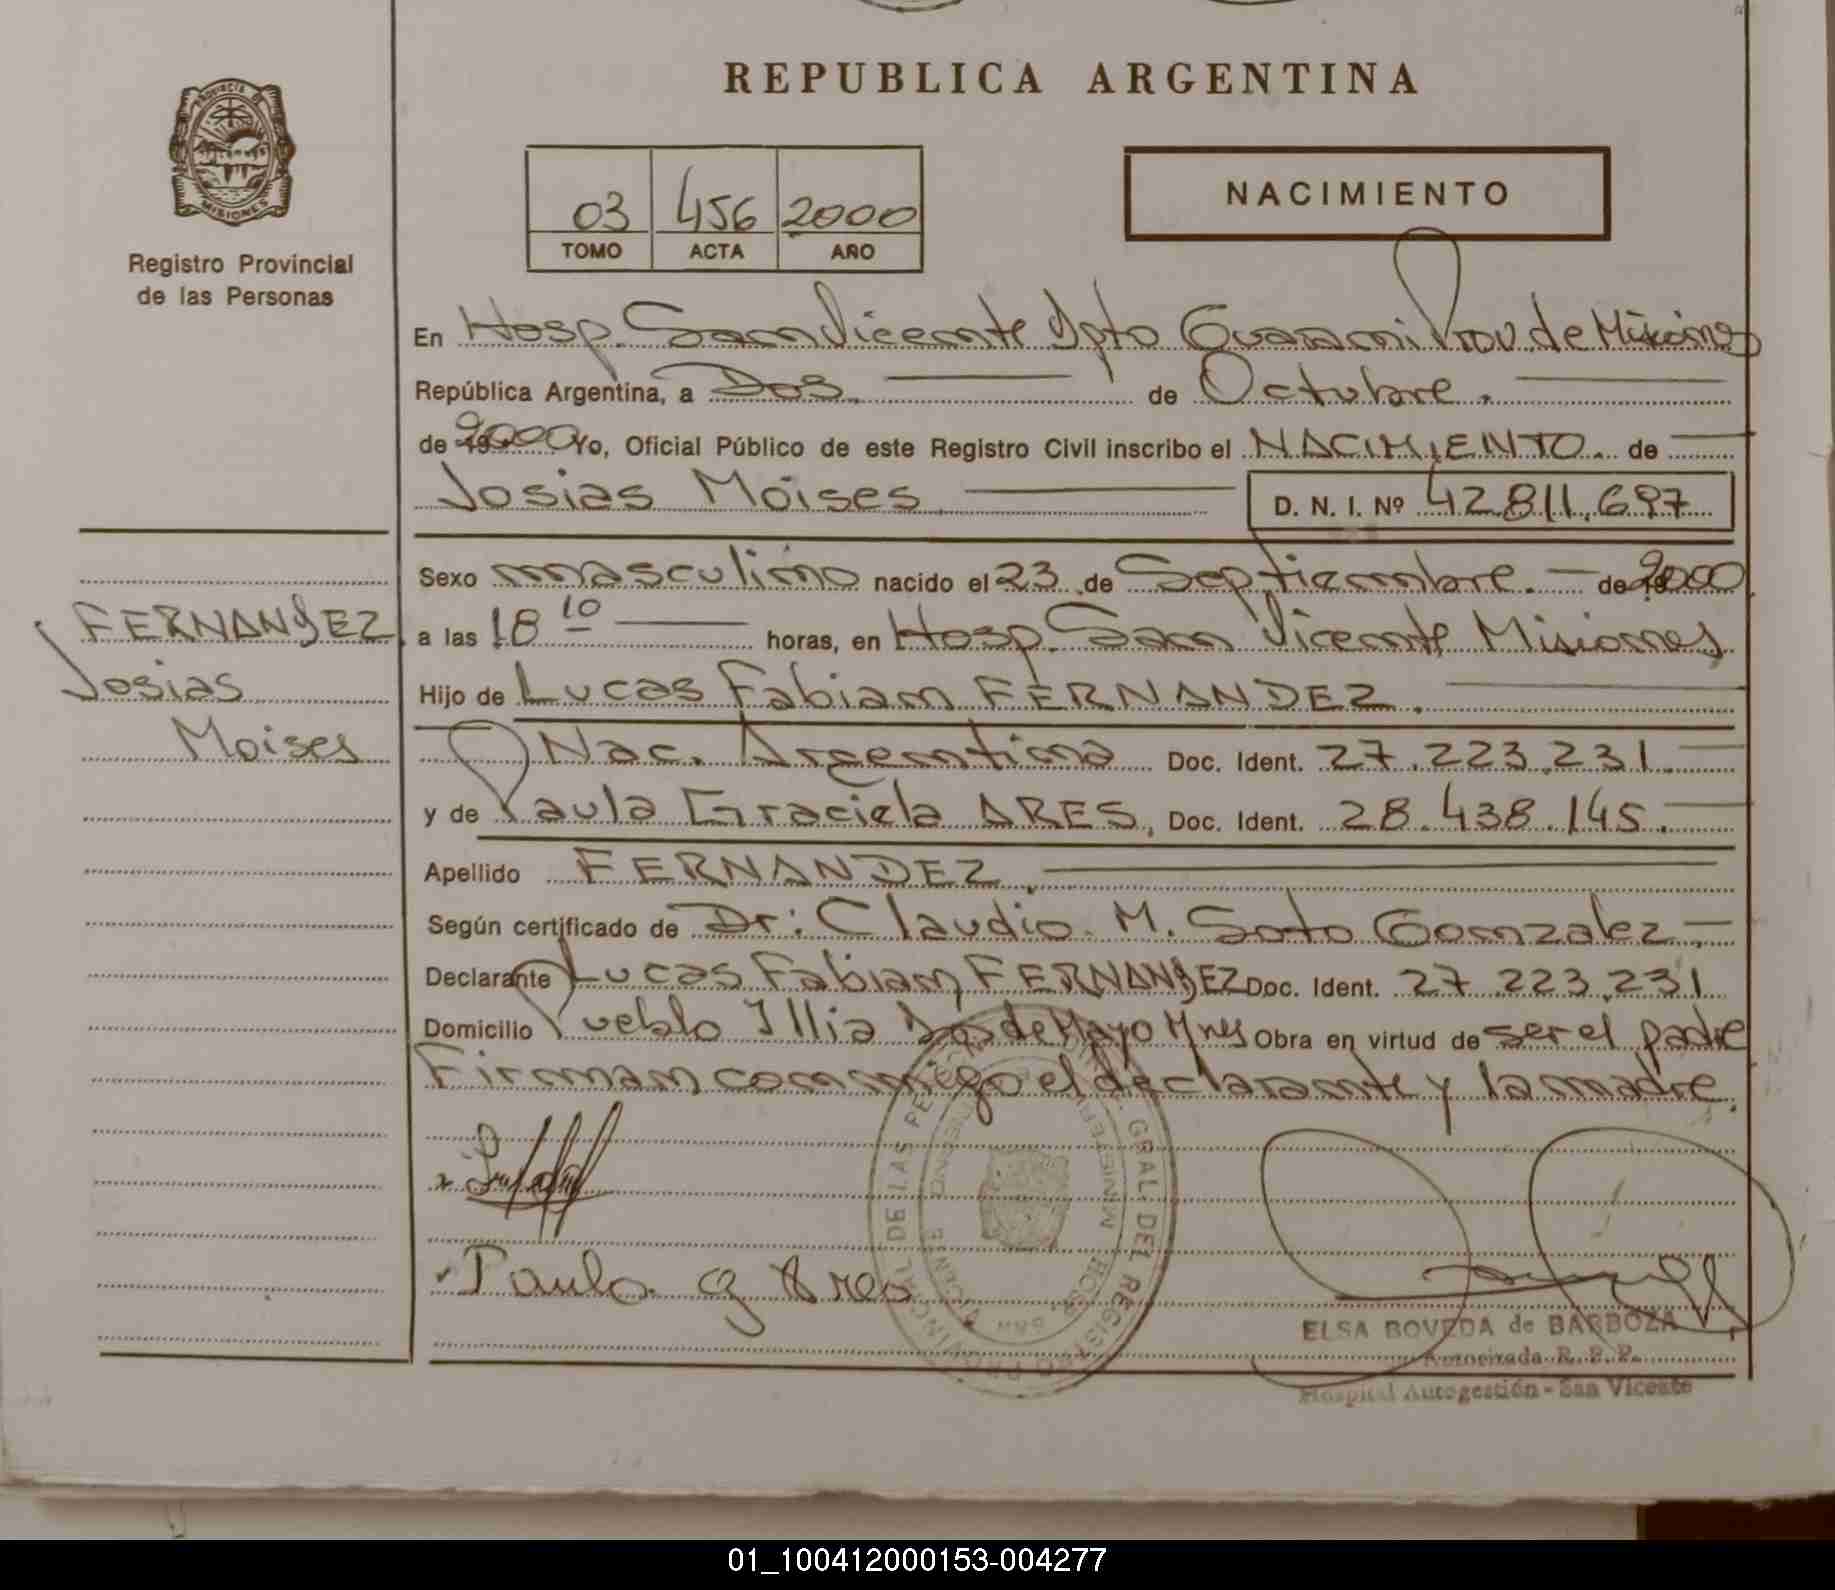 REPUBLICA ARGENTINA
PROVINCIA DE
MISIONES
Registro Provincial
de las Personas
03 456 2000
TOMO ACTA AÑO
NACIMIENTO
En Hosp. San Vicente Dpto Guarani Prov. de Misiones
República Argentina, a Dos. de Octubre.
de 19 2000 Yo, Oficial Público de este Registro Civil inscribo el NACIMIENTO. de
Josias Moises D. N. I. Nº 42.811.697
Sexo masculino nacido el 23 de Septiembre. de 19 2000
a las 18 10 horas, en Hosp. San Vicente Misiones
Hijo de Lucas Fabian FERNANDEZ.
Nac. Argentina Doc. Ident. 27.223.231.
y de Paula Graciela ARES, Doc. Ident. 28.438.145.
Apellido FERNANDEZ.
Según certificado de Dr: Claudio M. Soto Gonzalez.
Declarante Lucas Fabian FERNANDEZ Doc. Ident. 27.223.231
Domicilio Pueblo Illia Dos de Mayo Mnes Obra en virtud de ser el padre
Firman conmigo el declarante y la madre.
FERNANDEZ
Josias
Moises
Paula G Ares
GRAL. DEL REGISTRO PROVINCIAL DE LAS
HOSP. SAN VICENTE
ELSA BOVEDA de BARBOZA
Autorizada R. P. P.
Hospital Autogestión - San Vicente
01_100412000153-004277